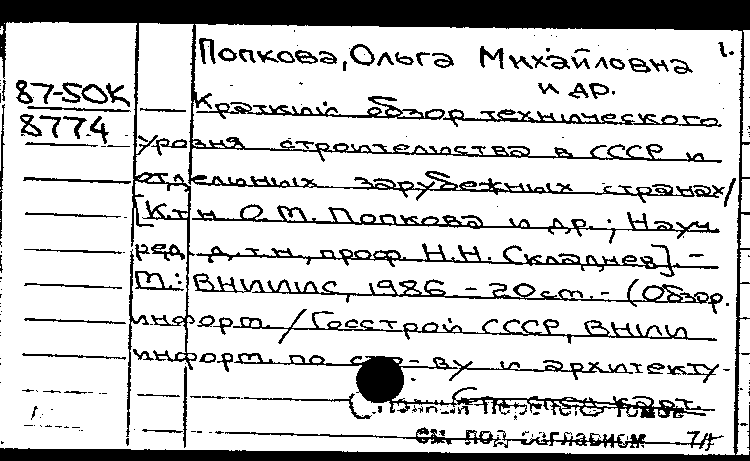 Попкова, Ольга Михайловна 1.
и др.
87-50К
8774
Краткий обзор технического
уровня строительства в СССР и
отдельных зарубежных странах/
[К.т.н. О.М. Попкова и др.; Науч.
ред. д.т.н., проф. Н.Н. Складнев]. -
М.: ВНИИИС, 1986 - 20 см. - (Обзор.
информ. / Госстрой СССР, ВНИИ
информ. по стр-ву и архитекту-
См. след. карт.
Полный перечень томов
см. под заглавием